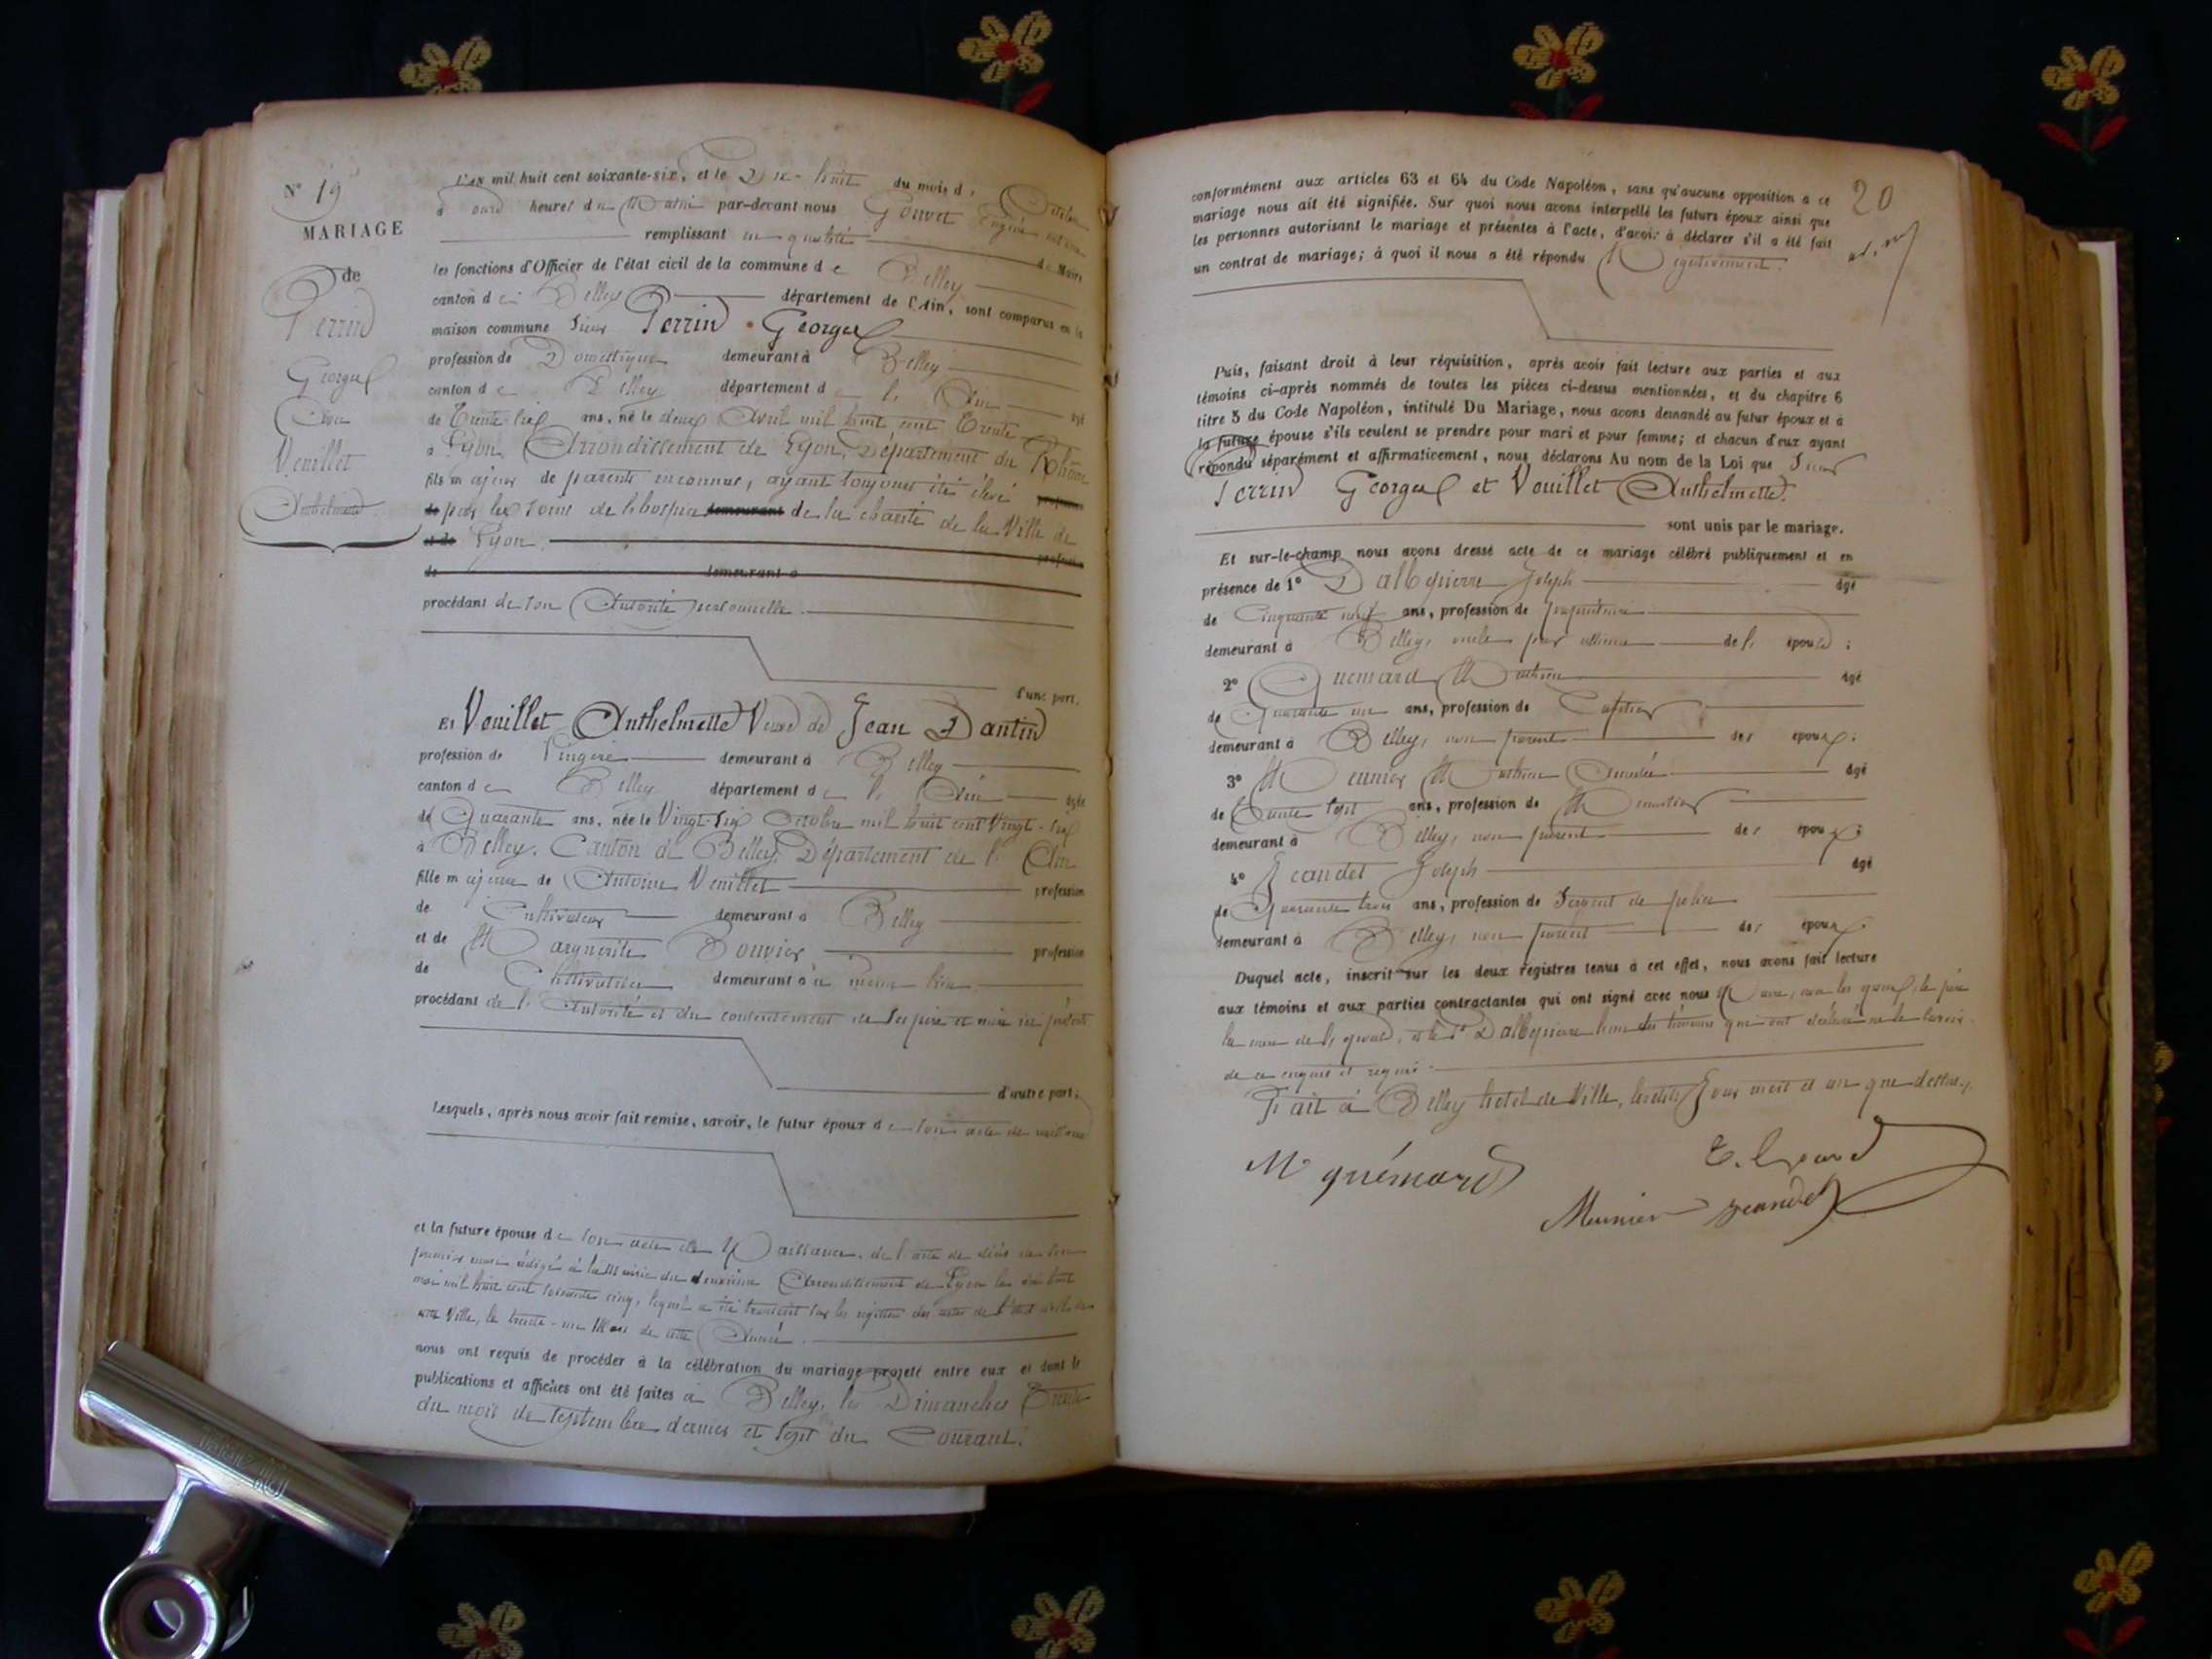 N° 19
MARIAGE
de
Perrin
Georges
Avec
Vouillet
Anthelmette
L'an mil huit cent soixante-six, et le Dix-huit du mois d'Octobre
à onze heures du Matin par-devant nous
remplissant en qualité de Maire
les fonctions d'Officier de l'état civil de la commune de Belley
canton de Belley département de l'Ain, sont comparus en la
maison commune Sieur Perrin Georges
profession de Domestique demeurant à Belley
canton de Belley département de l'Ain âgé
de Trente-six ans, né le deux Avril mil huit cent Trente
à Lyon, Arrondissement de Lyon, Département du Rhône
fils majeur de parents inconnus, ayant toujours été élevé profession
de par les soins de l'hospice demeurant de la charité de la Ville de
et de Lyon. profession
de demeurant à
procédant de son Autorité personnelle.
d'une part.
Et Vouillet Anthelmette Veuve de Jean Dantin
profession de Lingère demeurant à Belley
canton de Belley département de l'Ain âgée
de Quarante ans, née le Vingt-six Octobre mil huit cent Vingt-six
à Belley, Canton de Belley, Département de l'Ain
fille majeure de Antoine Vouillet profession
de Cultivateur demeurant à Belley
et de Marguerite Bouvier profession
de Cultivatrice demeurant à u même lieu
procédant de l'Autorité et du consentement de ses père et mère ici présents
d'autre part;
Lesquels, après nous avoir fait remise, savoir, le futur époux de son acte de naissance
et la future épouse de son acte de Naissance, de l'acte de décès de son
premier mari rédigé à la Mairie du deuxième Arrondissement de Lyon le
mai mil huit cent soixante cinq, lequel a été transcrit sur les registres des actes de l'état civil de
cette Ville, le trente-un Mai de cette Année.
nous ont requis de procéder à la célébration du mariage projeté entre eux et dont les
publications et affiches ont été faites à Belley, les Dimanches Trente
du mois de septembre dernier et sept du Courant.
20
conformément aux articles 63 et 64 du Code Napoléon, sans qu'aucune opposition à ce
mariage nous ait été signifiée. Sur quoi nous avons interpellé les futurs époux ainsi que
les personnes autorisant le mariage et présentes à l'acte, d'avoir à déclarer s'il a été fait
un contrat de mariage; à quoi il nous a été répondu Négativement.
Puis, faisant droit à leur réquisition, après avoir fait lecture aux parties et aux
témoins ci-après nommés de toutes les pièces ci-dessus mentionnées, et du chapitre 6
titre 5 du Code Napoléon, intitulé Du Mariage, nous avons demandé au futur époux et à
la future épouse s'ils veulent se prendre pour mari et pour femme; et chacun d'eux ayant
répondu séparément et affirmativement, nous déclarons Au nom de la Loi que Sieur
Perrin Georges et Vouillet Anthelmette.
sont unis par le mariage.
Et sur-le-champ nous avons dressé acte de ce mariage célébré publiquement et en
présence de 1° Dalbepierre Joseph âgé
de Cinquante neuf ans, profession de propriétaire
demeurant à Belley, oncle par alliance de l'épouse;
2° Guémard Mathieu âgé
de Quarante un ans, profession de Cafetier
demeurant à Belley, non parent des époux;
3° Meunier Amédée âgé
de Trente sept ans, profession de
demeurant à Belley, non parent des époux;
4° Jeandet Joseph âgé
de Quarante trois ans, profession de Sergent de police
demeurant à Belley, non parent des époux.
Duquel acte, inscrit sur les deux registres tenus à cet effet, nous avons fait lecture
aux témoins et aux parties contractantes qui ont signé avec nous Maire, non les époux, le père
la mère de l'épouse, et le Sr Dalbepierre l'un des témoins qui ont déclaré ne le savoir
de ce enquis et requis.
Fait à Belley hotel de Ville, les dits Jour mois et an que dessus.
M guémard
Meunier Jeandet